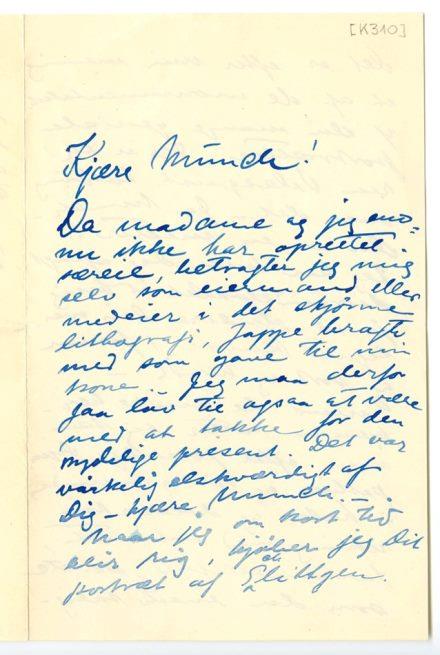 [K310]
Kjære Munch!
Da madame og jeg end=
nu ikke har oprettet
særeie, betragter jeg mig
selv som eiermand eller
medeier i det skjønne
lithografi, Jappe bragte
med som gave til min
kone. Jeg maa derfor
faa lov til ogsaa at være
med at takke for den
nydelige present. Det var
virkelig elskværdigt af
Dig – kjære Munch. –
Naar jeg om kort tid
blir rig, kjøber jeg Dit
portræt af